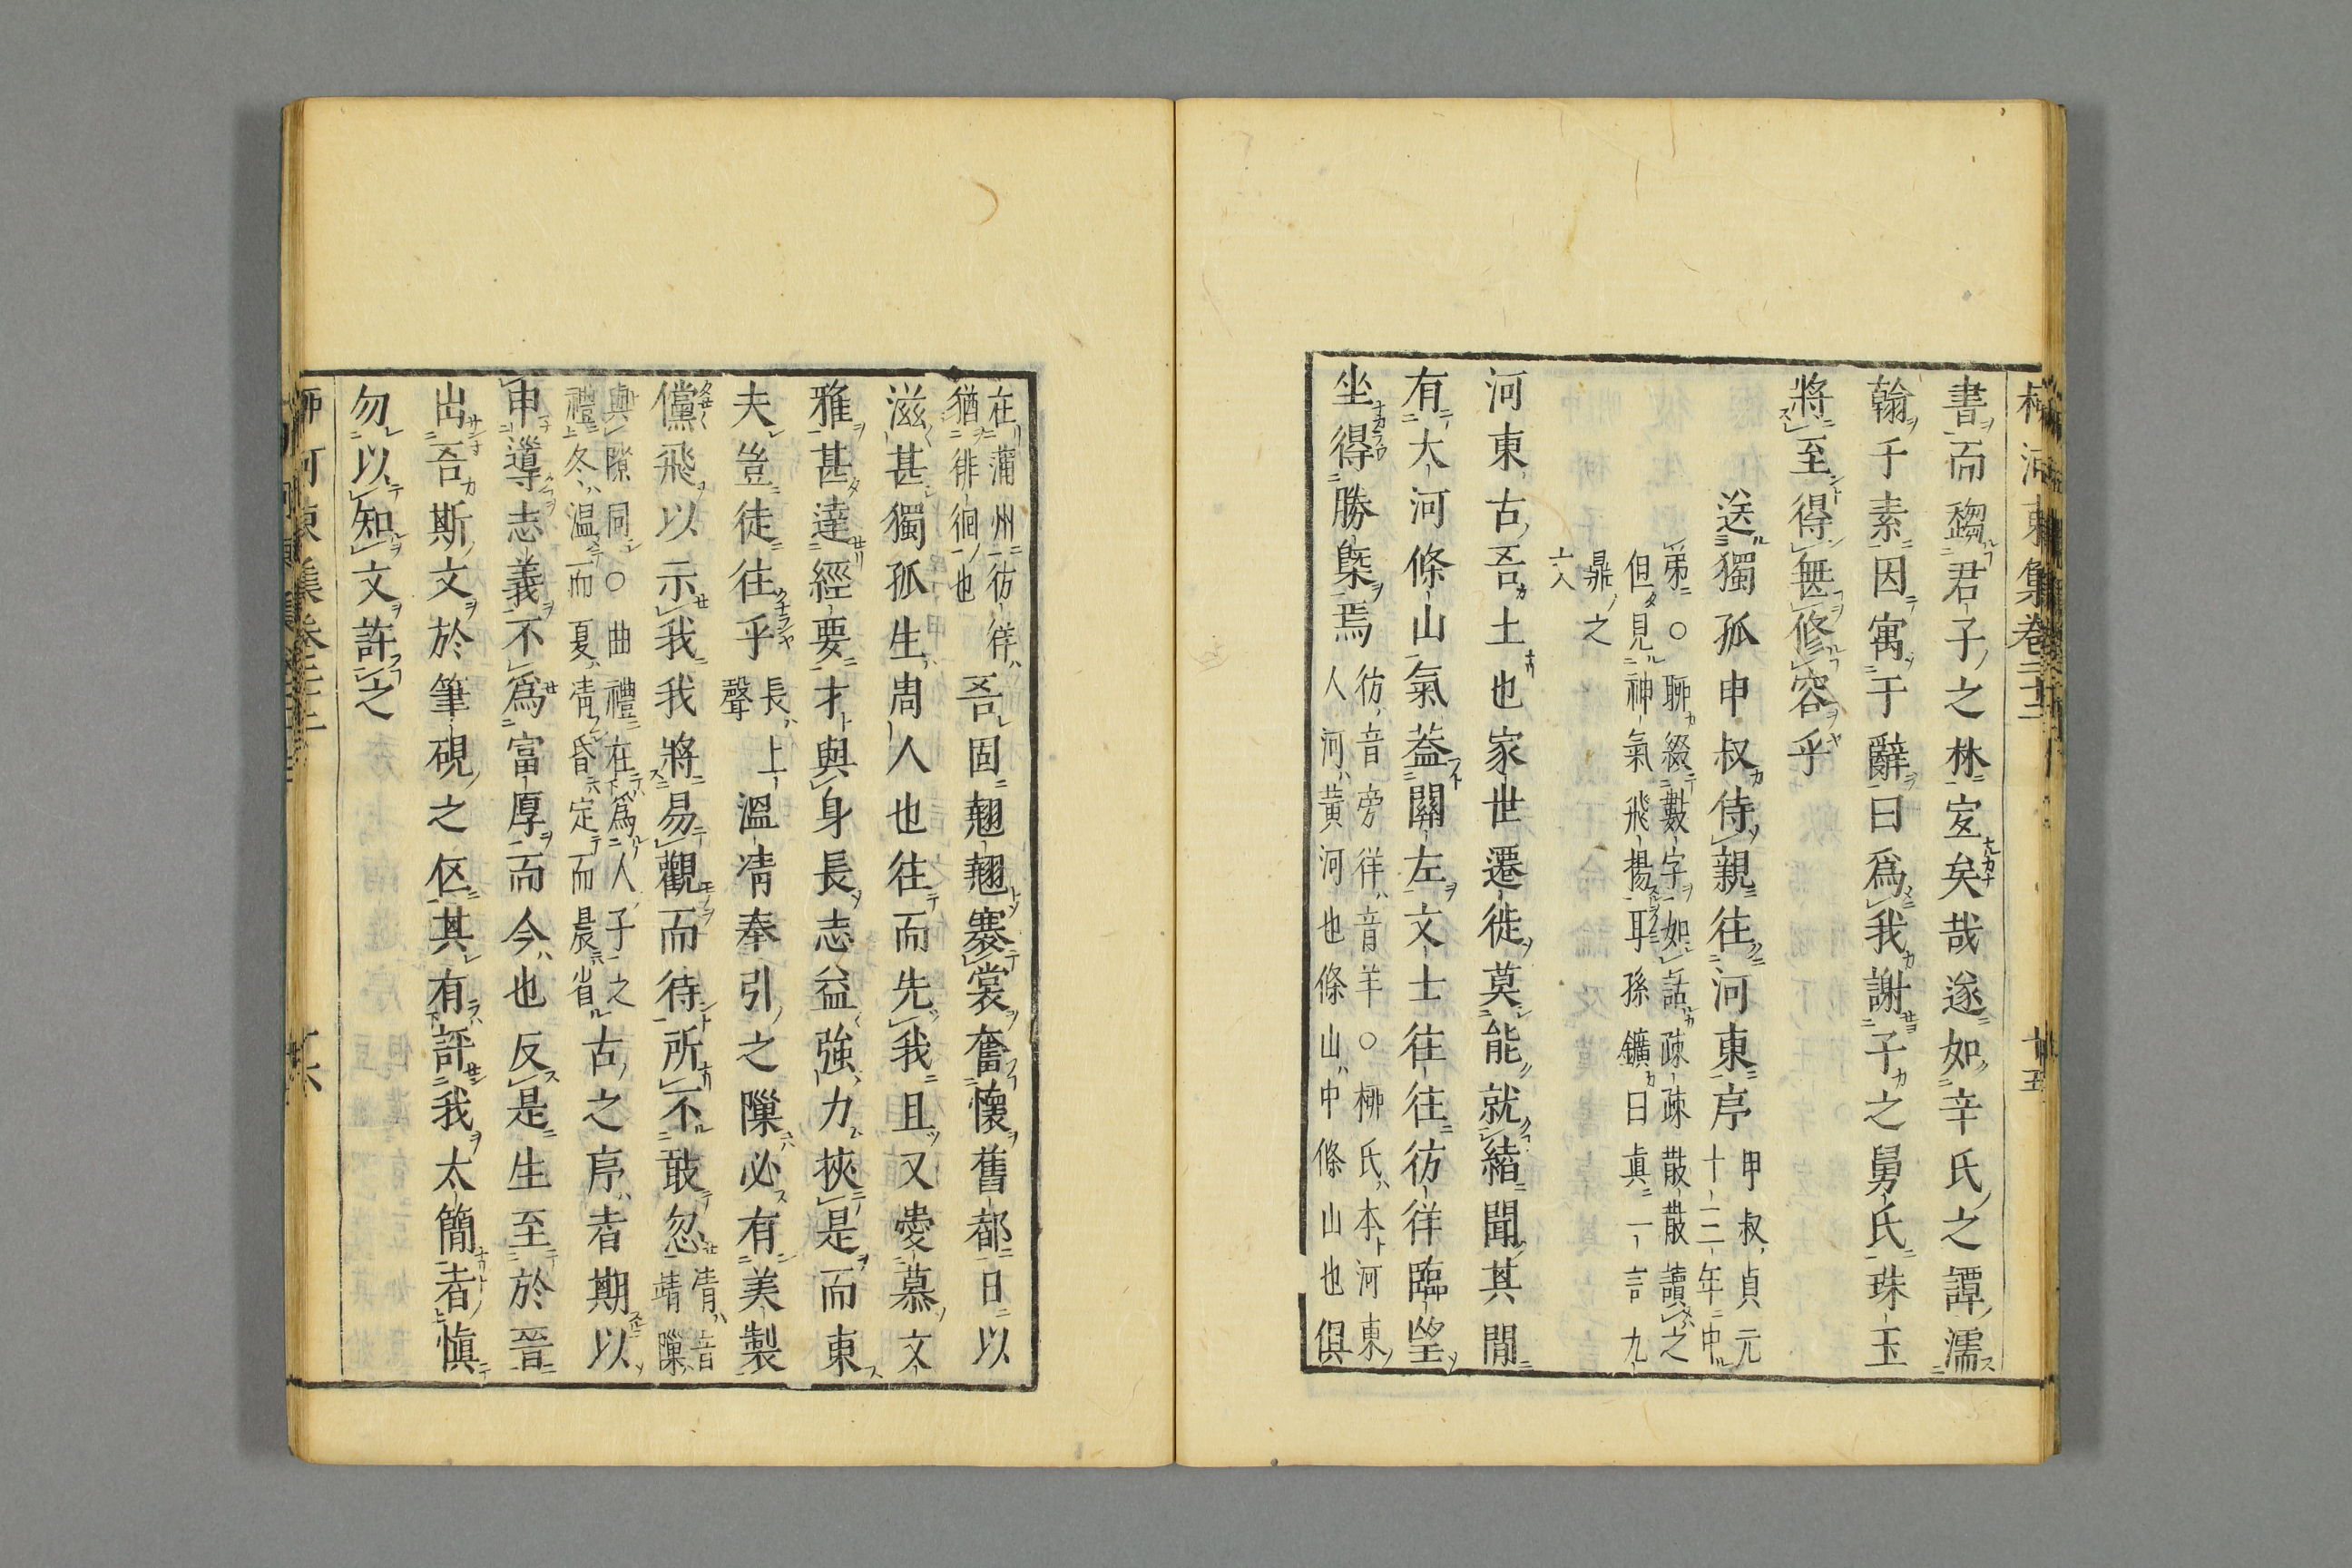 柳河東集卷二十二 廿五
書而蹈君子之林宜矣哉遂如辛氏之譚濡
翰于素因寓于辭曰爲我謝子之舅氏珠玉
將至得無修容乎
送獨孤申叔侍親往河東序 申叔貞元十三年中
弟○聊綴數字如話疎疎散散讀之
但見神氣飛揚耳孫鑛曰眞一言九
鼎之
六入
河東古吾土也家世遷徙莫能就緒聞其間
有大河條山氣葢關左文士往往彷徉臨望
坐得勝槩焉 彷音旁徉音羊○柳氏本河東人河黄河也條山中條山也俱
在蒲州彷徉猶徘徊也 吾固翹翹褰裳奮懷舊都日以
滋甚獨孤生周人也往而先我且又愛慕文
雅甚達經要才與身長志益強力挾是而東
夫豈徒往乎 長上聲 溫凊奉引之隟必有美製
儻飛以示我我將易觀而待所不敢忽 凊音靖隟
與隙同○曲禮在爲人子之禮冬温而夏凊昏定而晨省 古之序者期以
申導志義不爲富厚而今也反是生至於晉
出吾斯文於筆硯之伍其有評我太簡者愼
勿以知文許之
柳河東集卷二十二